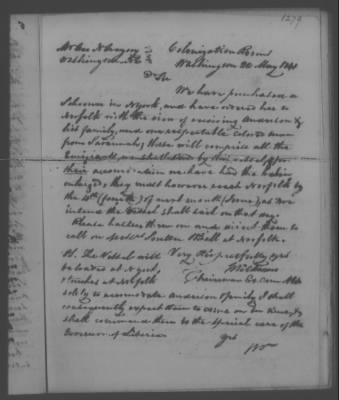 1279
Colonization Rooms
Washington 20 May 1841
Dr Sir
We have purchased a
Schooner in N York, and have ordered her to
Norfolk with the view of receiving Anderson &
his family, and one respectable colored man
from Savannah, these will comprise all the
Emigrants, we shall send by this vessel, for
their accommodation we have had the cabin
enlarged, they must however reach Norfolk by
the (fourth) of next month (June) as we
intend the Vessel shall sail on that day.
Please hasten them on and direct them to
call on Soutter & Bell at Norfolk.
Very Respectfully yrs
PS. The Vessel will
be loaded at N York,
& touches at Norfolk
Chairman Ex Com
solely to accommodate Anderson & family, I shall
consequently expect them to come on in time, &
shall commend them to the special care of the
Governor of Liberia
yrs